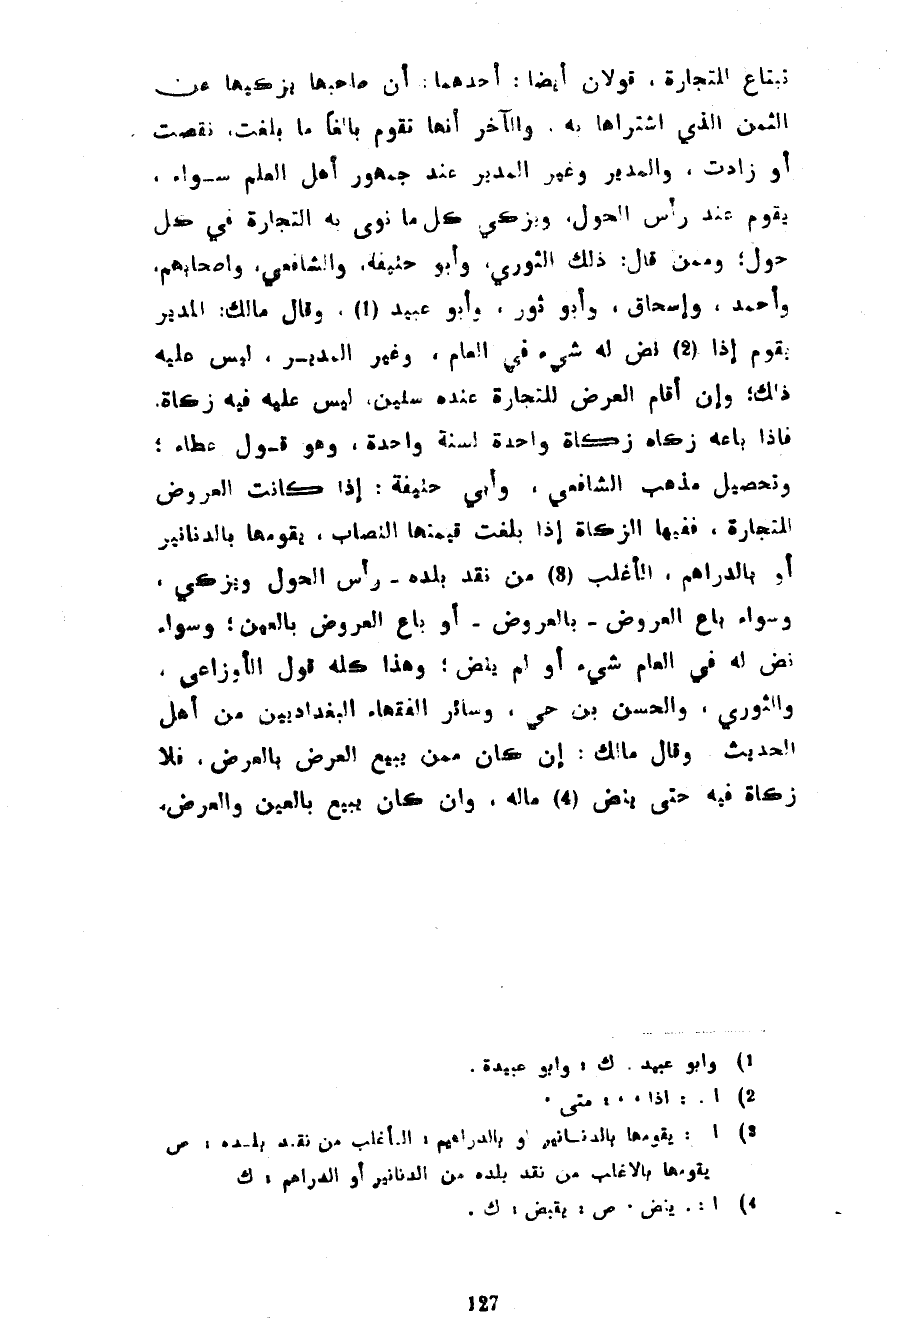 تبتاع للتجارة ، قولان أيضا : أحدهما : أن صاحبها يزكيها عن
الثمن الذي اشتراها به . والآخر أنها تقوم بالغاً ما بلغت، نقصت
أو زادت ، والمدير وغير المدير عند جمهور أهل العلم ســواء ،
يقوم عند رأس الحول، ويزكي كل ما نوى به التجارة في كل
حول؛ وممن قال: ذلك الثوري، وأبو حنيفة، والشافعي، واصحابهم،
وأحمد ، وإسحاق ، وأبو ثور ، وأبو عبيد (1) ، وقال مالك: المدير
يقوم إذا (2) نض له شيء في العام ، وغير المديــر ، ليس عليه
ذلك؛ وإن أقام العرض للتجارة عنده سنين، ليس عليه فيه زكاة،
فاذا باعه زكاه زكاة واحدة لسنة واحدة ، وهو قــول عطاء ؛
وتحصيل مذهب الشافعي ، وأبي حنيفة : إذا كانت العروض
للتجارة ، ففيها الزكاة إذا بلغت قيمتها النصاب ، يقومها بالدنانير
أو بالدراهم ، الأغلب (3) من نقد بلده - رأس الحول ويزكي ،
وسواء باع العروض - بالعروض - أو باع العروض بالعين ؛ وسواء
نض له في العام شيء أو لم ينض ؛ وهذا كله قول الأوزاعى ،
والثوري ، والحسن بن حي ، وسائر الفقهاء البغداديين من أهل
الحديث . وقال مالك : إن كان ممن يبيع العرض بالعرض ، فلا
زكاة فيه حتى ينض (4) ماله ، وان كان يبيع بالعين والعرض،
1) وابو عبيد . ك : وابو عبيدة .
2) ا . : اذا ٠ ٠ : متى ٠
3) ا : يقومها بالدنــانير او بالدراهيم : الـأغلب من نقـد بلــده : ص
يقومها بالاغلب من نقد بلده من الدنانير أو الدراهم : ك
4) ا : . ينض ٠ ص : يقبض : ك .
127